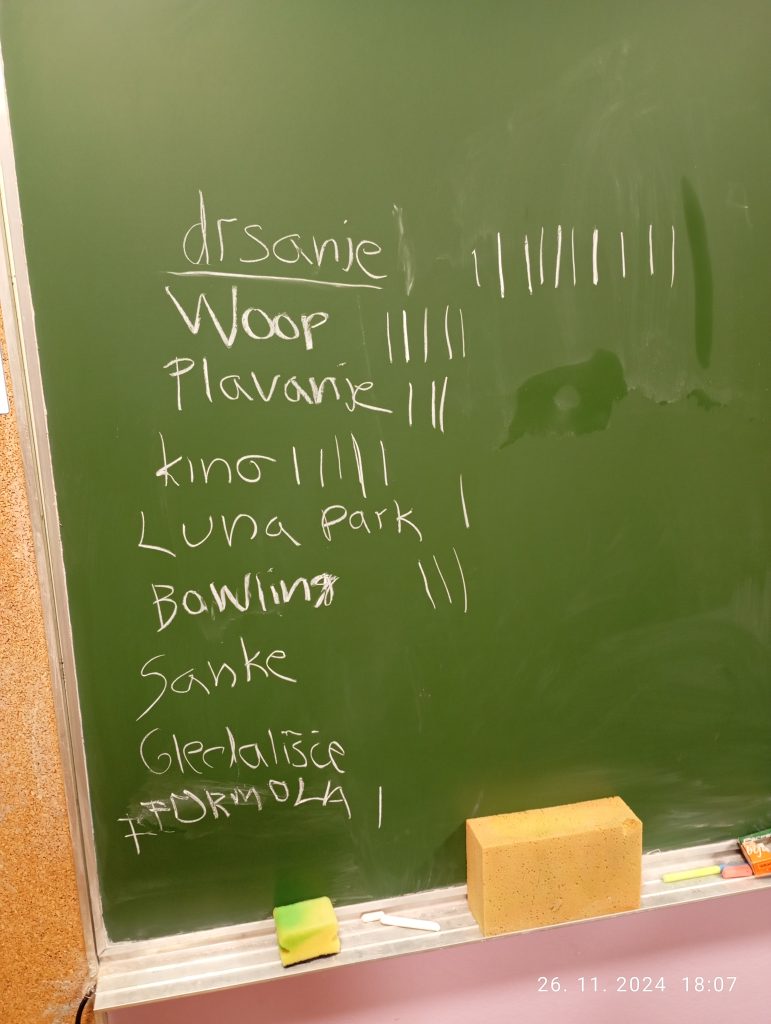 drsanje | | | | | | | | | |
Woop | | | | |
Plavanje | | |
kino | | | | | |
Luna park |
Bowling | | |
Sanke
Gledališče
FORMOLA |
26. 11. 2024 18:07